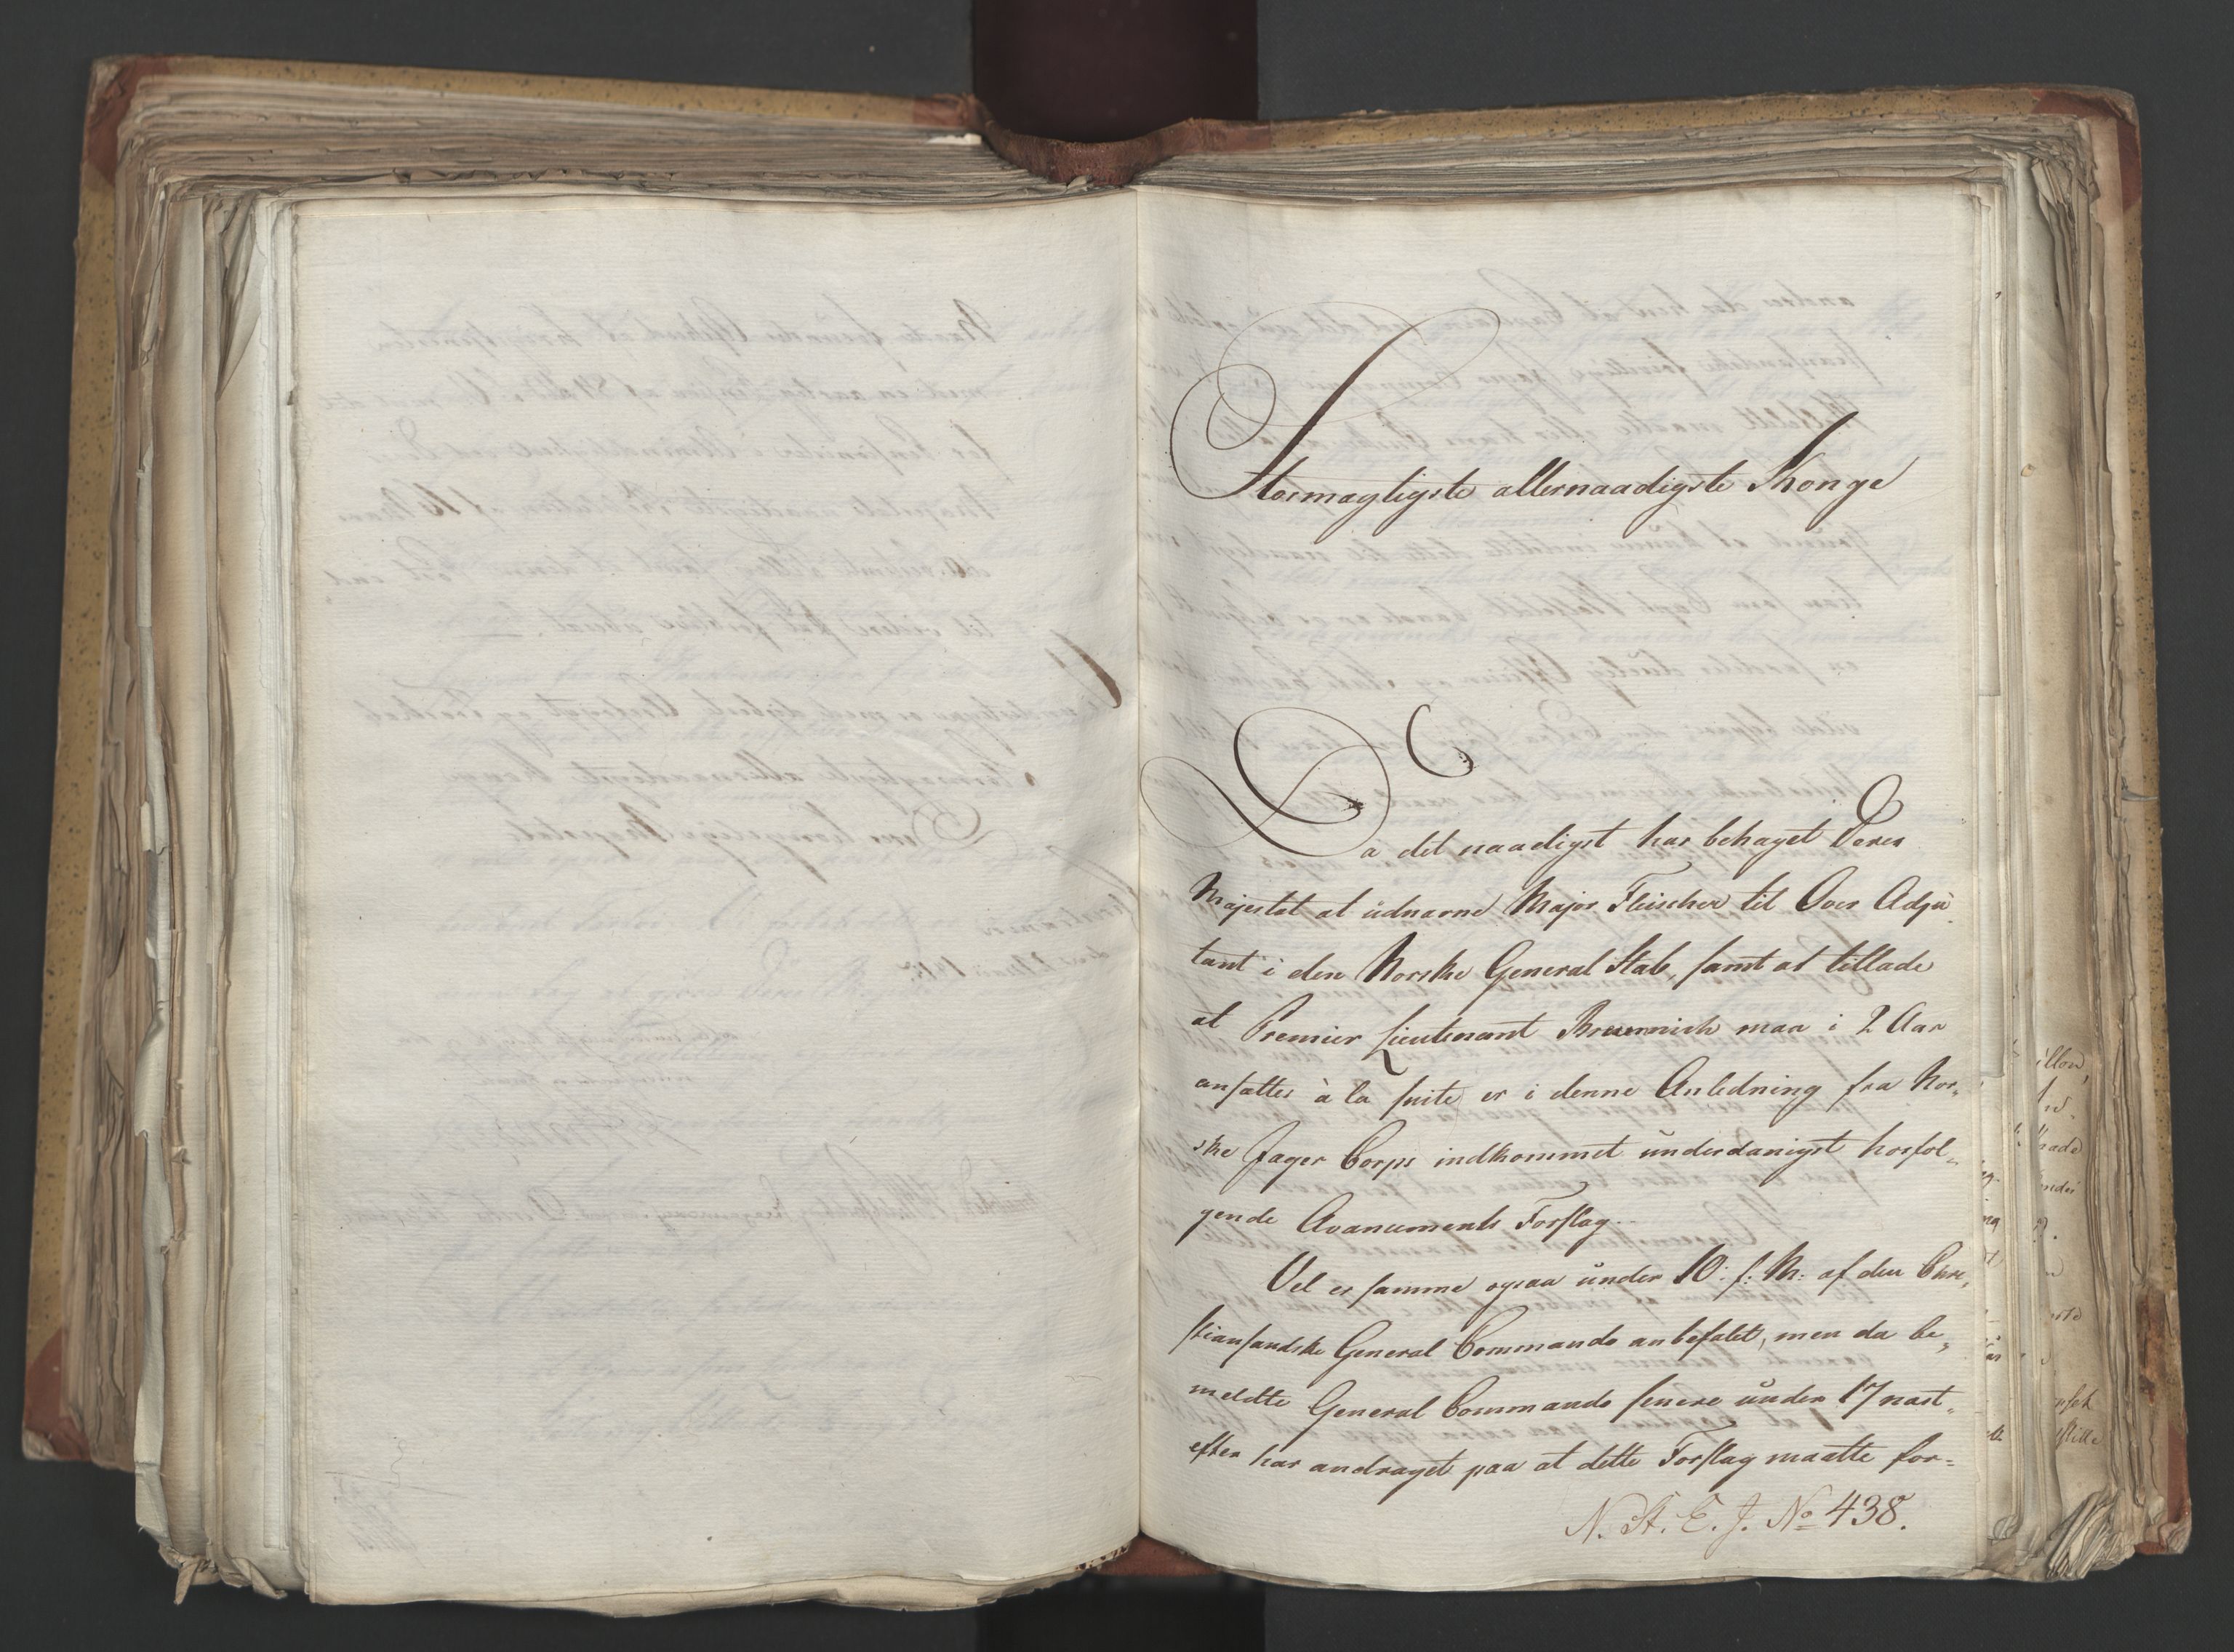 Stormægtigste allernaadigste Konge
Da det naadigst har behaget Deres
Majestæt at udnævne Major Fleischer til Over Adju
tant i den Norske General Stab, samt at tillade
at Premier Lieutenant maa i 2 Aar
ansættes à la suite, er i denne Anledning fra Nor-
ske Jæger Corps indkommet underdanigst hosføl-
gende Avancements Forslag.
Vel er samme ogsaa under 10. f: M: af den Chri-
stiansandske General Commando anbefalet, men da be-
meldte General Commando senere under 17 næst-
efter har andraget paa at dette Forslag maatte for-
N. A. E. J. No 438.